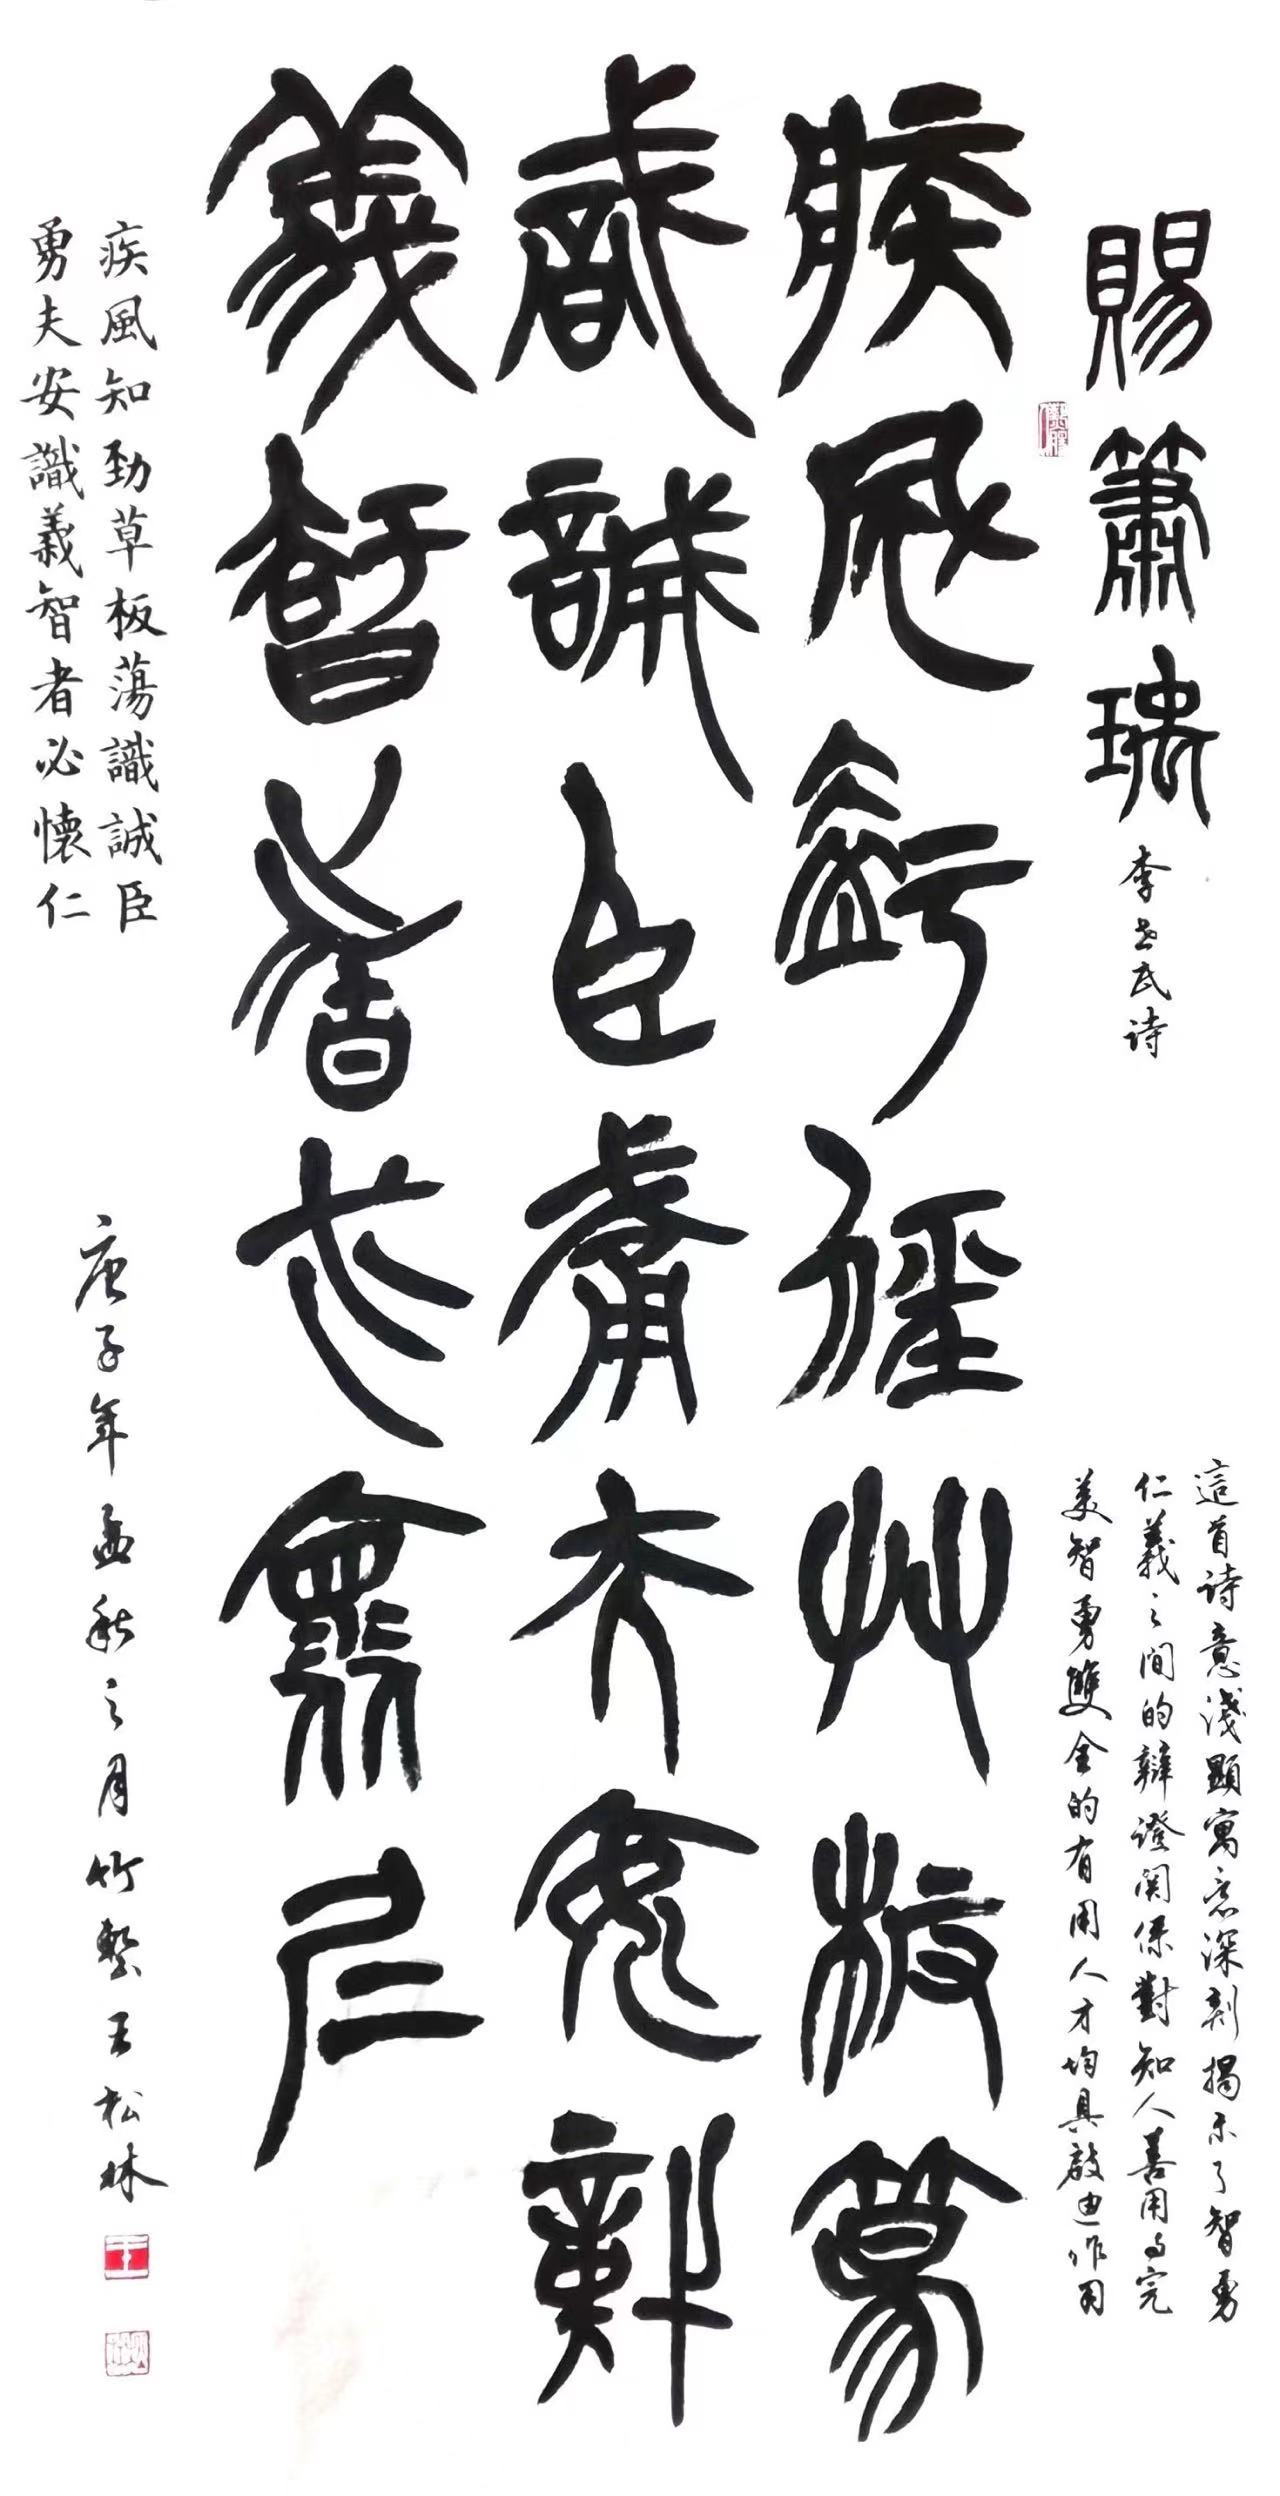 賜蕭瑀
李世民诗
這首诗意淺顯寓意深刻揭示了智勇
仁義之间的辯證関係對知人善用与完
美智勇雙全的有用人才均具啟迪作用
疾风劲草板荡
識誠臣勇夫安識
義智者必懷仁
疾風知勁草板蕩識誠臣
勇夫安識義智者必懷仁
庚子年孟秋之月竹墅王松林
王